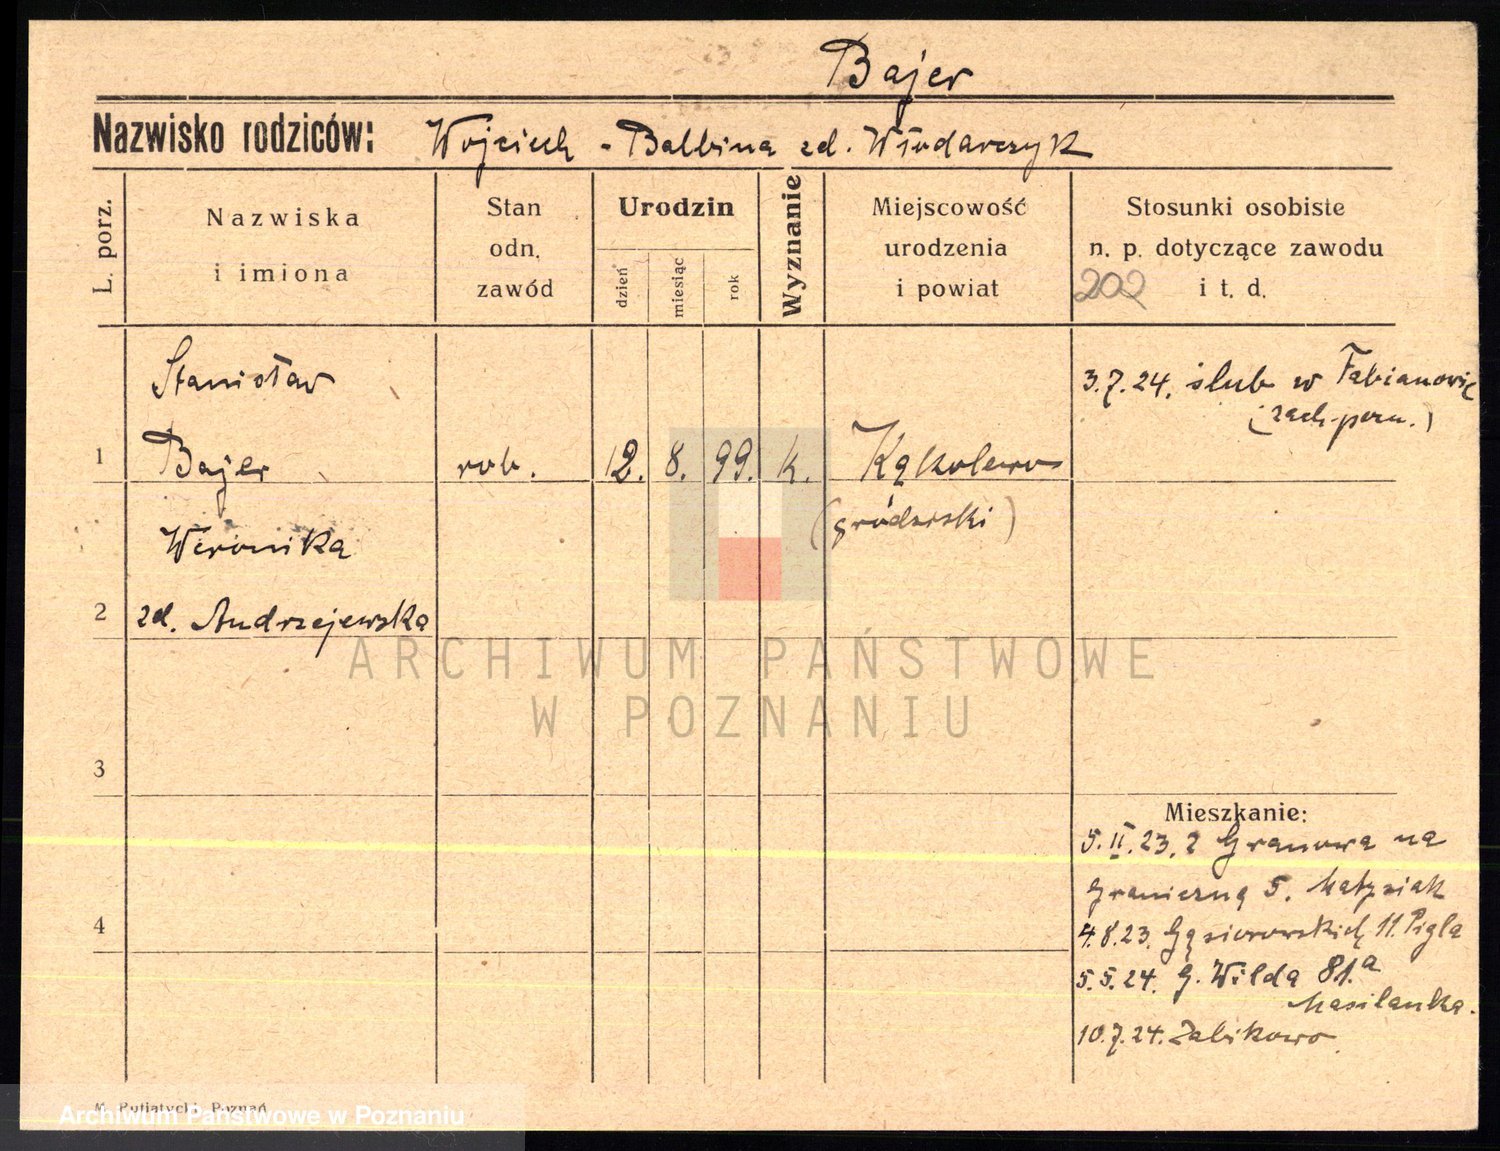 Bajer
Nazwisko rodziców: Wojciech - Balbina zd. Włodarczyk
L. porz.
Nazwiska i imiona
Stan odn. zawód
Urodzin
dzień
miesiąc
rok
Wyznanie
Miejscowość urodzenia i powiat
Stosunki osobiste
n. p. dotyczące zawodu
202 i t. d.
Stanisław
3.7.24. ślub w Fabianowie
1 Bajer rob. 12. 8. 99. k. Kąkolewo
(grodziski)
Weronika
2 zd. Andrzejewska
ARCHIWUM PAŃSTWOWE
W POZNANIU
3
Mieszkanie:
5.II.23. z Granowa na
Graniczną 5. Matysiak
4
4.8.23. Gąsiorowskich 11. Pigla
5.5.24. G. Wilda 81.a
Maślanka.
10.7.24. Żabikowo
M. Putiatycki, Poznań
Archiwum Państwowe w Poznaniu